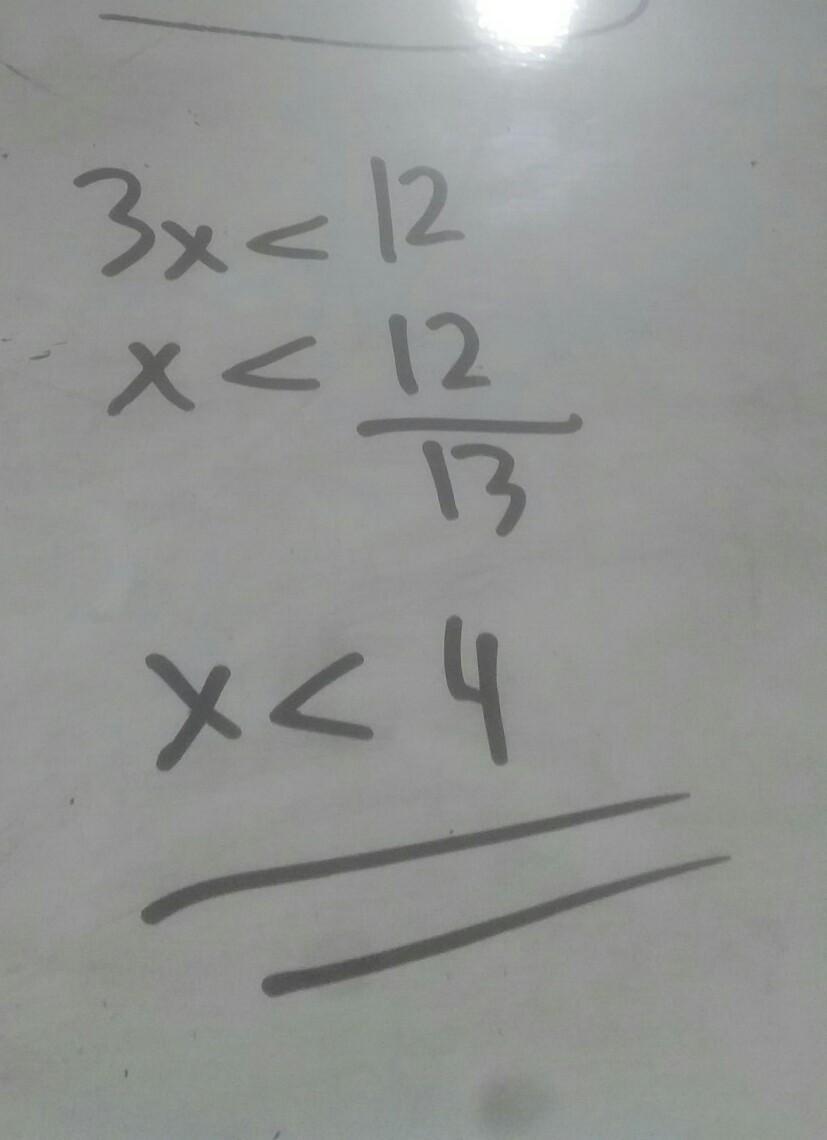 3x < 12
x < 12/13
x < 4